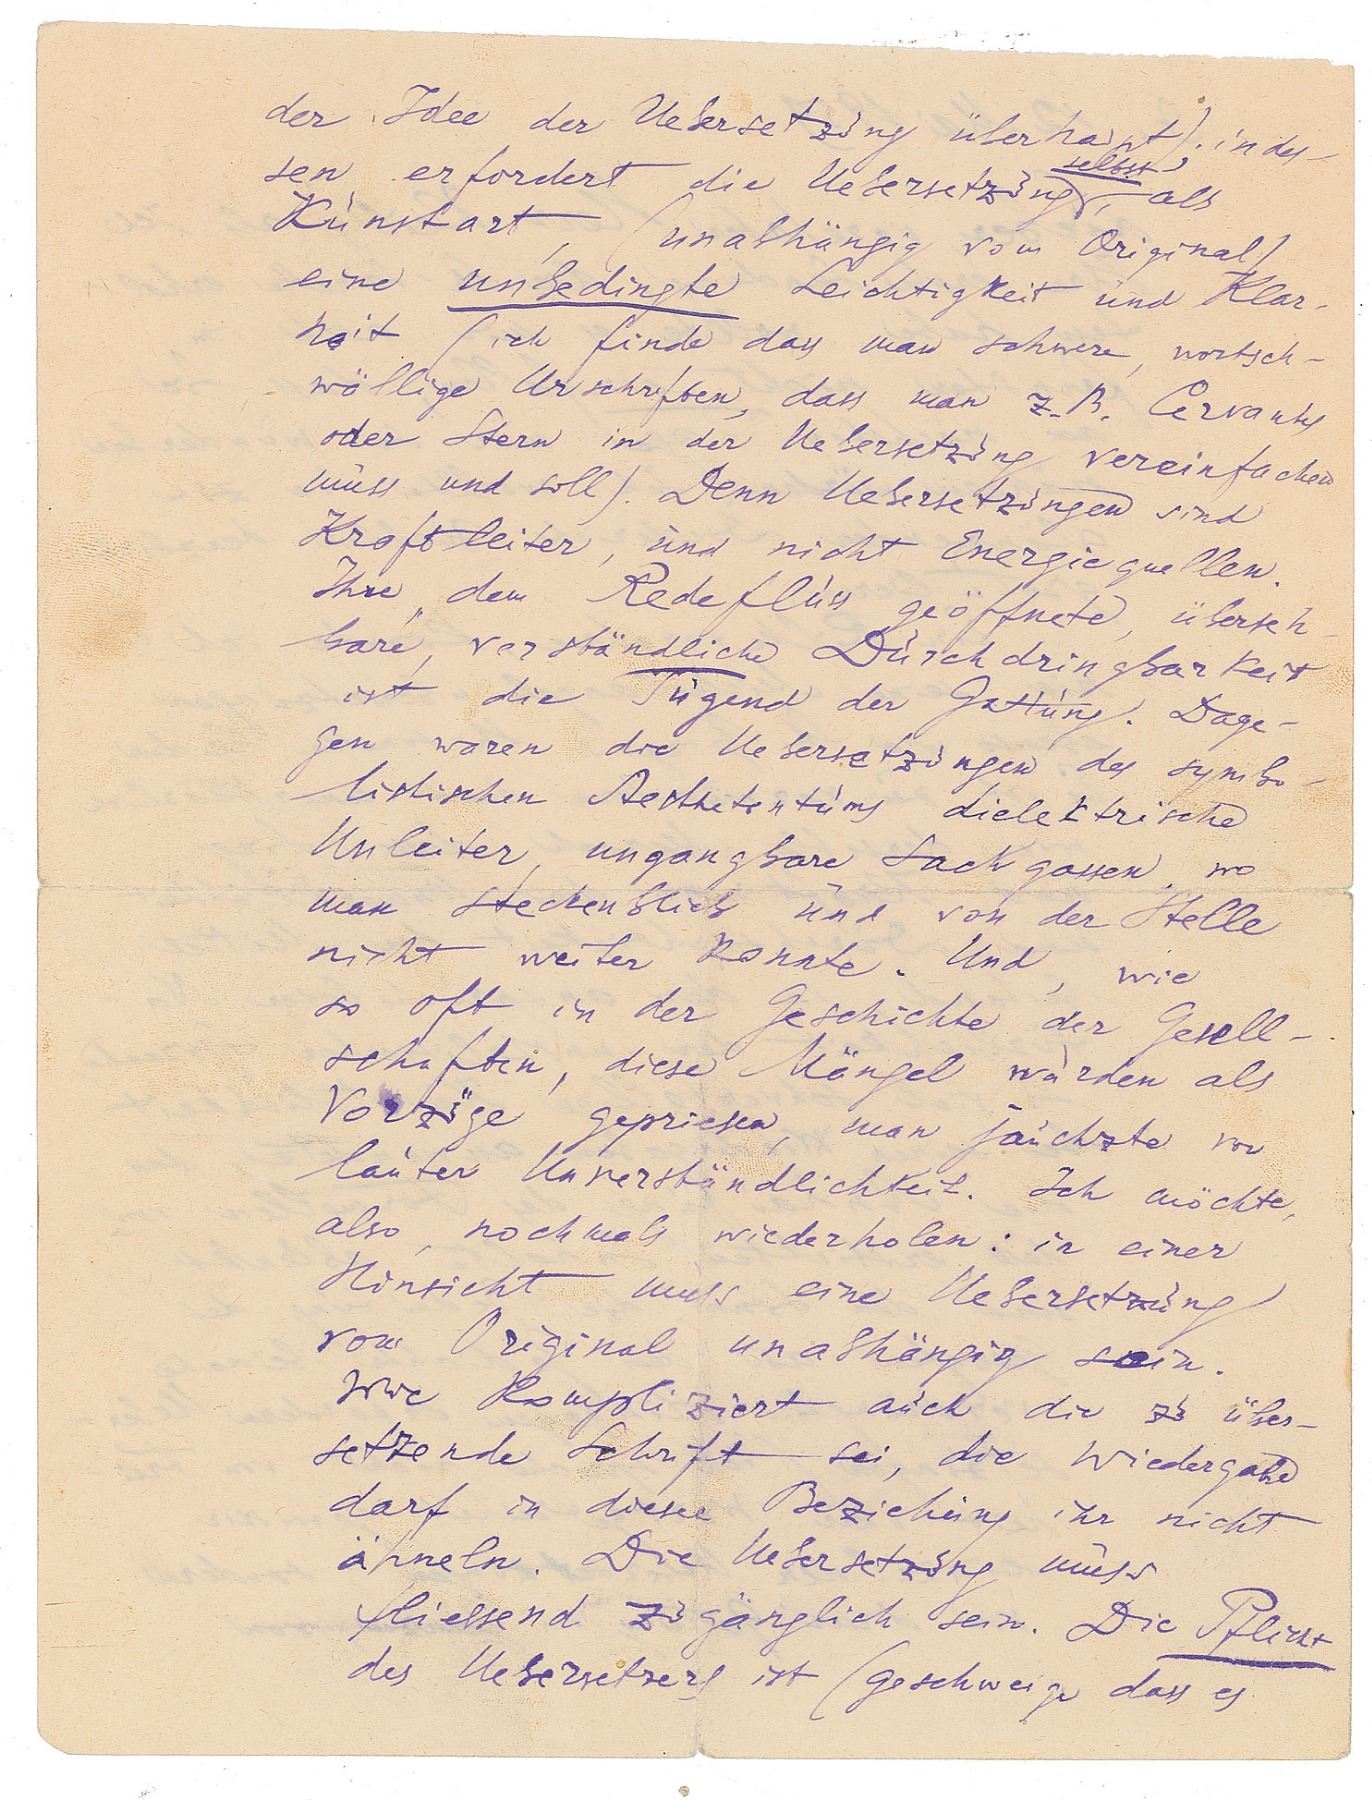 der Idee der Uebersetzung überhaupt). indes-
sen erfordert die Uebersetzung selbst, als
Kunstart, (unabhängig vom Original)
eine unbedingte Leichtigkeit und Klar-
heit (ich finde dass man schwere, wortsch-
wällige Urschriften, dass man z.B. Cervantes
oder Stern in der Uebersetzung vereinfachen
muss und soll). Denn Uebersetzungen sind
Kraftleiter, und nicht Energiequellen.
Ihre, dem Redefluss geöffnete, überseh-
bare, verständliche Durchdringbarkeit
ist die Tugend der Gattung. Dage-
gen waren die Uebersetzungen des symbo-
listischen Aesthetentums dielektrische
Unleiter, ungangbare Sackgassen, wo
man steckenblieb und von der Stelle
nicht weiter konnte. Und, wie
so oft in der Geschichte der Gesell-
schaften, diese Mängel wurden als
Vorzüge gepriesen, man jauchzte vor
lauter Unverständlichkeit. Ich möchte,
also, nochmals wiederholen: in einer
Hinsicht muss eine Uebersetzung
vom Original unabhängig sein.
Wie kompliziert auch die zu über-
setzende Schrift sei, die Wiedergabe
darf in dieser Beziehung ihr nicht
ähneln. Die Uebersetzung muss
fliessend zugänglich sein. Die Pflicht
des Uebersetzers ist (geschweige dass es